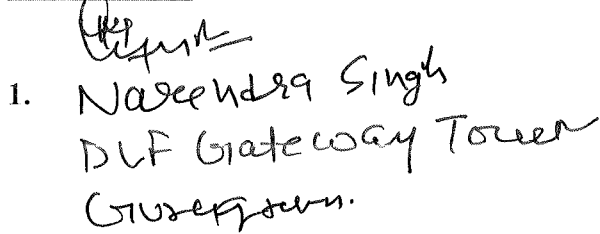 1. Narendra Singh
DLF Gateway Tower
Gurugram.